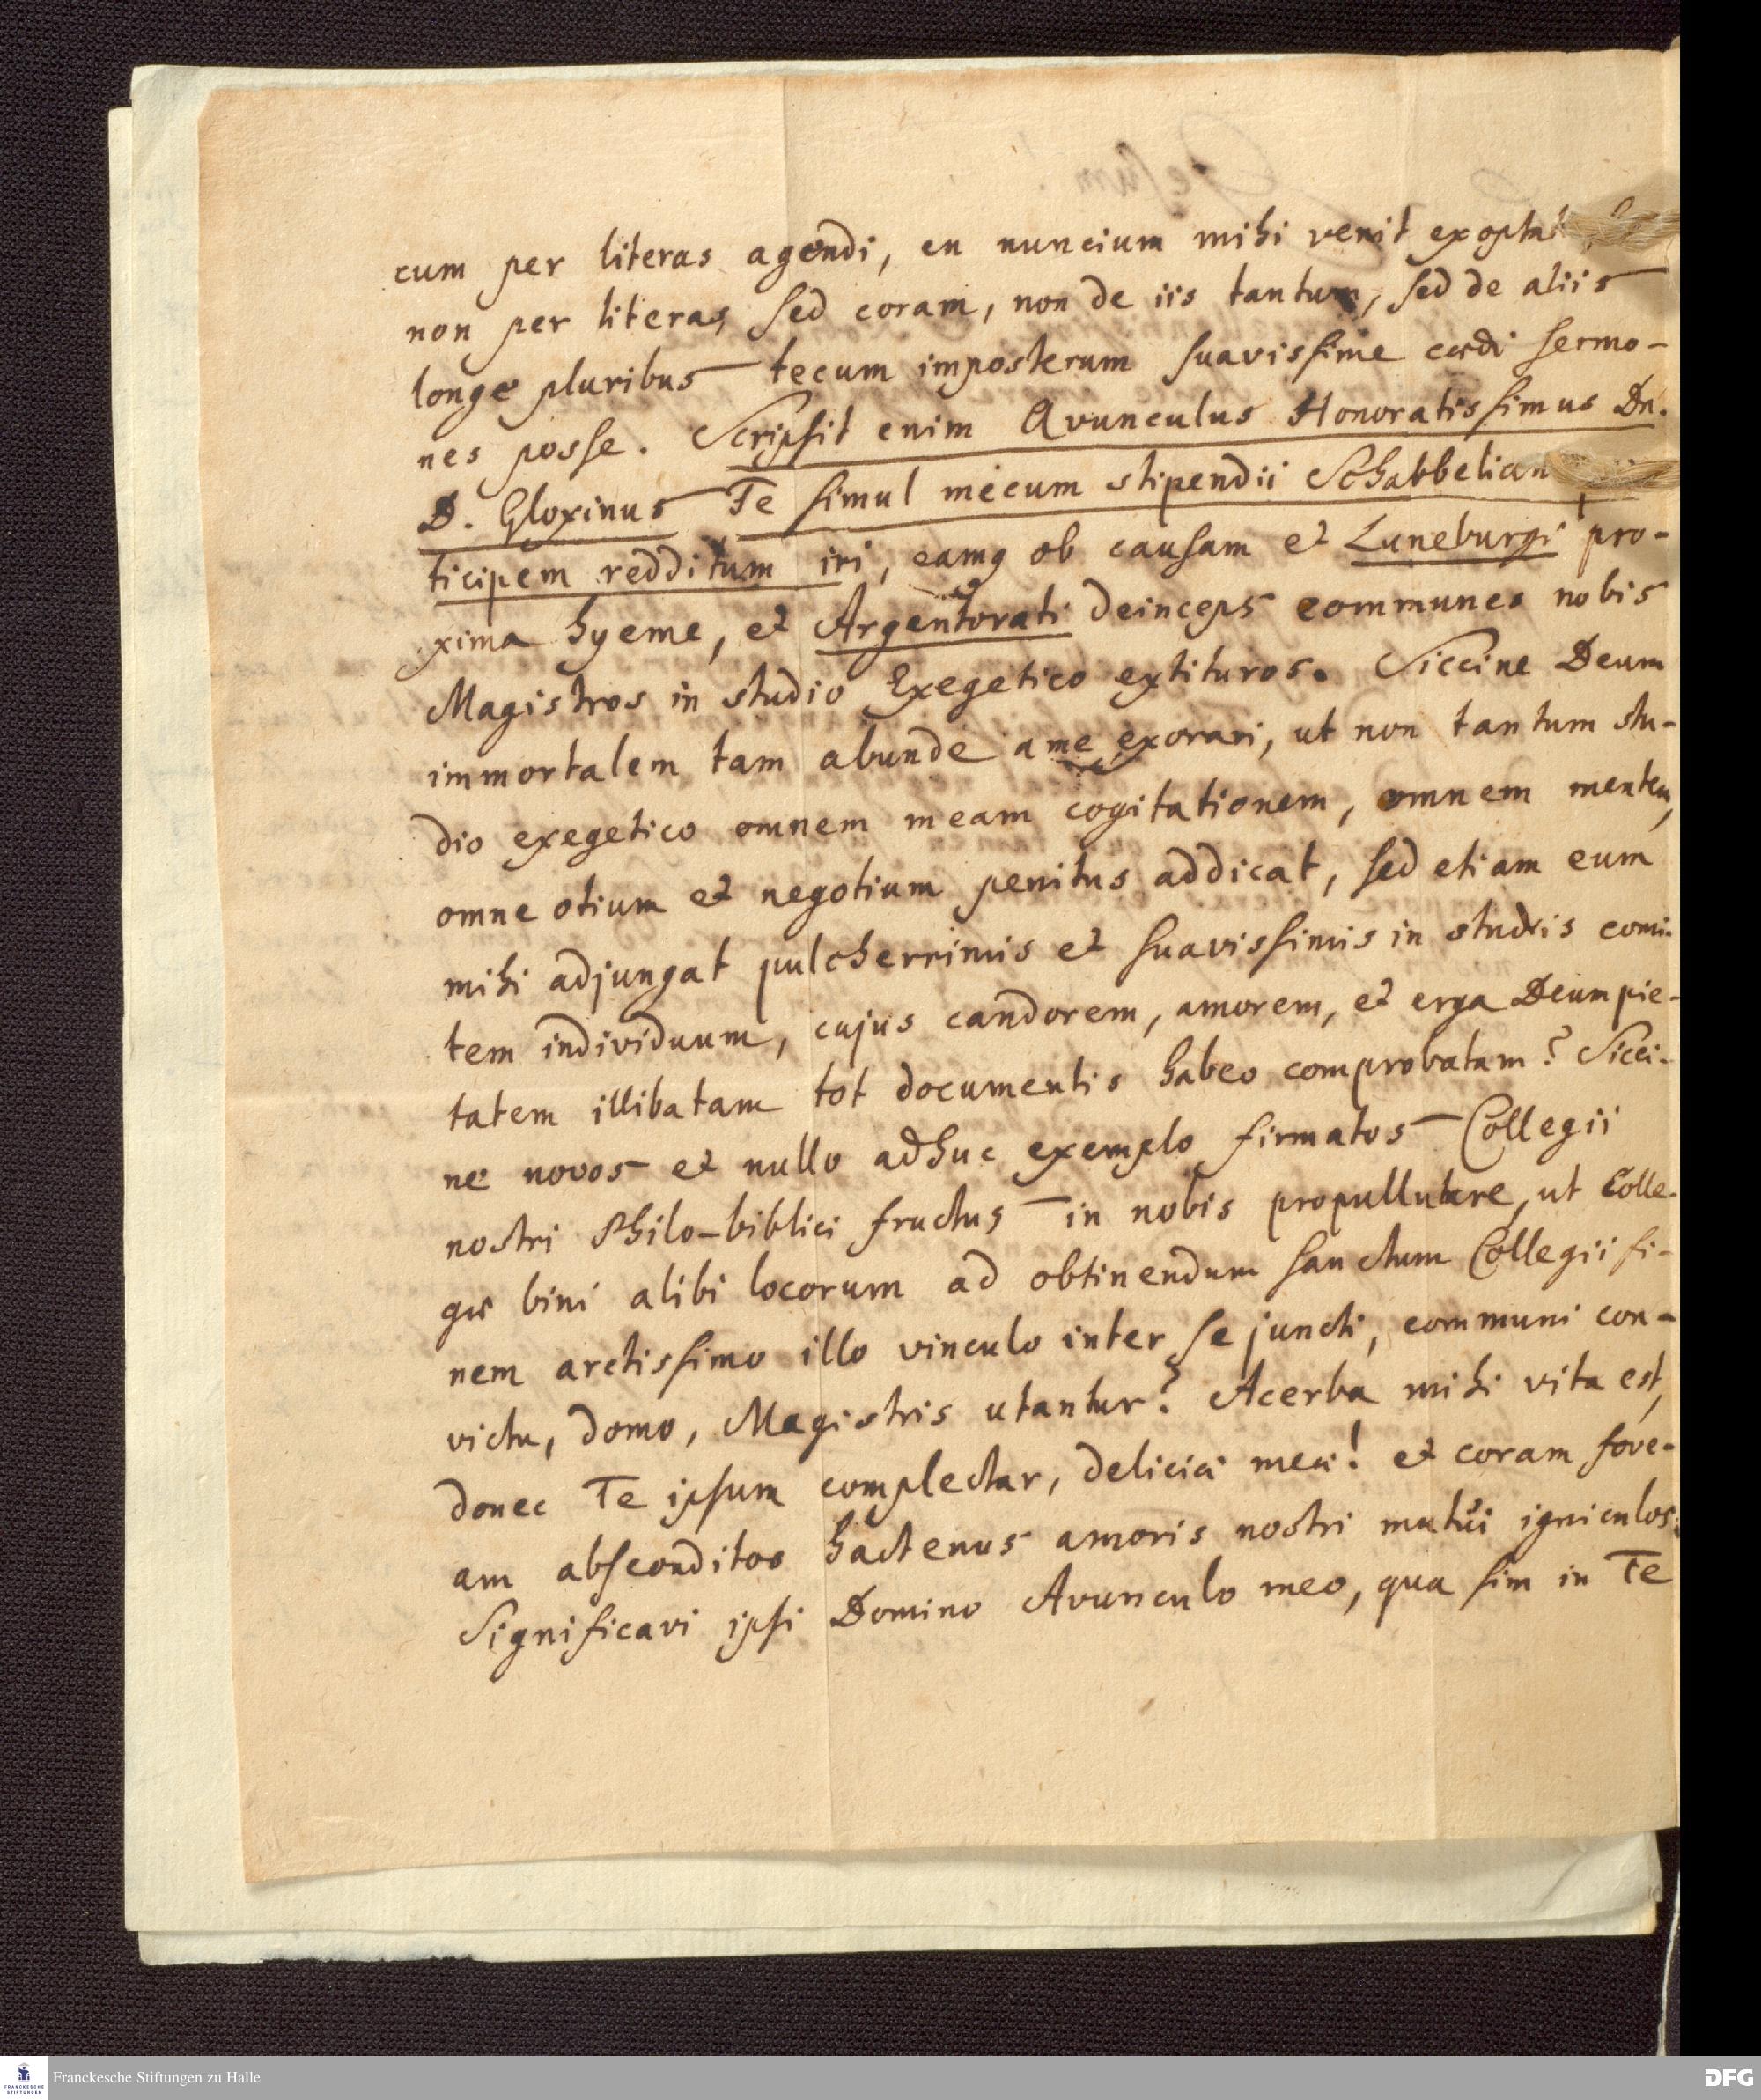 cum per literas agendi, en nuncium mihi venit exoptat
non per literas, sed coram, non de iis tantum, sed de aliis
longe pluribus tecum imposterum suavissime cædi sermo-
nes posse. Scripsit enim Avunculus Honoratissimus Dn.
D. Gloxinus Te simul mecum stipendii Schabbelian
ticipem redditum iri, eamq ob causam et Luneburgi pro-
xima hyeme, et Argentorati deinceps communes nobis
Magistros in studio Exegetico extituros. Siccine Deum
immortalem tam abunde a me exorari, ut non tantum stu-
dio exegetico omnem meam cogitationem, omnem mentem,
omne otium et negotium penitus addicat, sed etiam eum
mihi adjungat pulcherrimis et suavissimis in studiis comi-
tem individuum, cujus candorem, amorem, et erga Deum pie-
tatem illibatam tot documentis habeo comprobatam? Sicci-
ne novos et nullo adhuc exemplo firmatos Collegii
nostri Philo-biblici fructus in nobis propullulare, ut Colle-
gæ bini alibi locorum ad obtinendum sanctum Collegii fi-
nem arctissimo illo vinculo inter se juncti, communi con-
victu, domo, Magistris utantur? Acerba mihi vita est,
donec Te ipsum complectar, deliciæ meæ! et coram fove-
am absconditos hactenus amoris nostri mutui igniculos.
Significavi ipsi Domino Avunculo meo, qua sim in Te
Franckesche Stiftungen zu Halle
FRANCKESCHE STIFTUNGEN
DFG